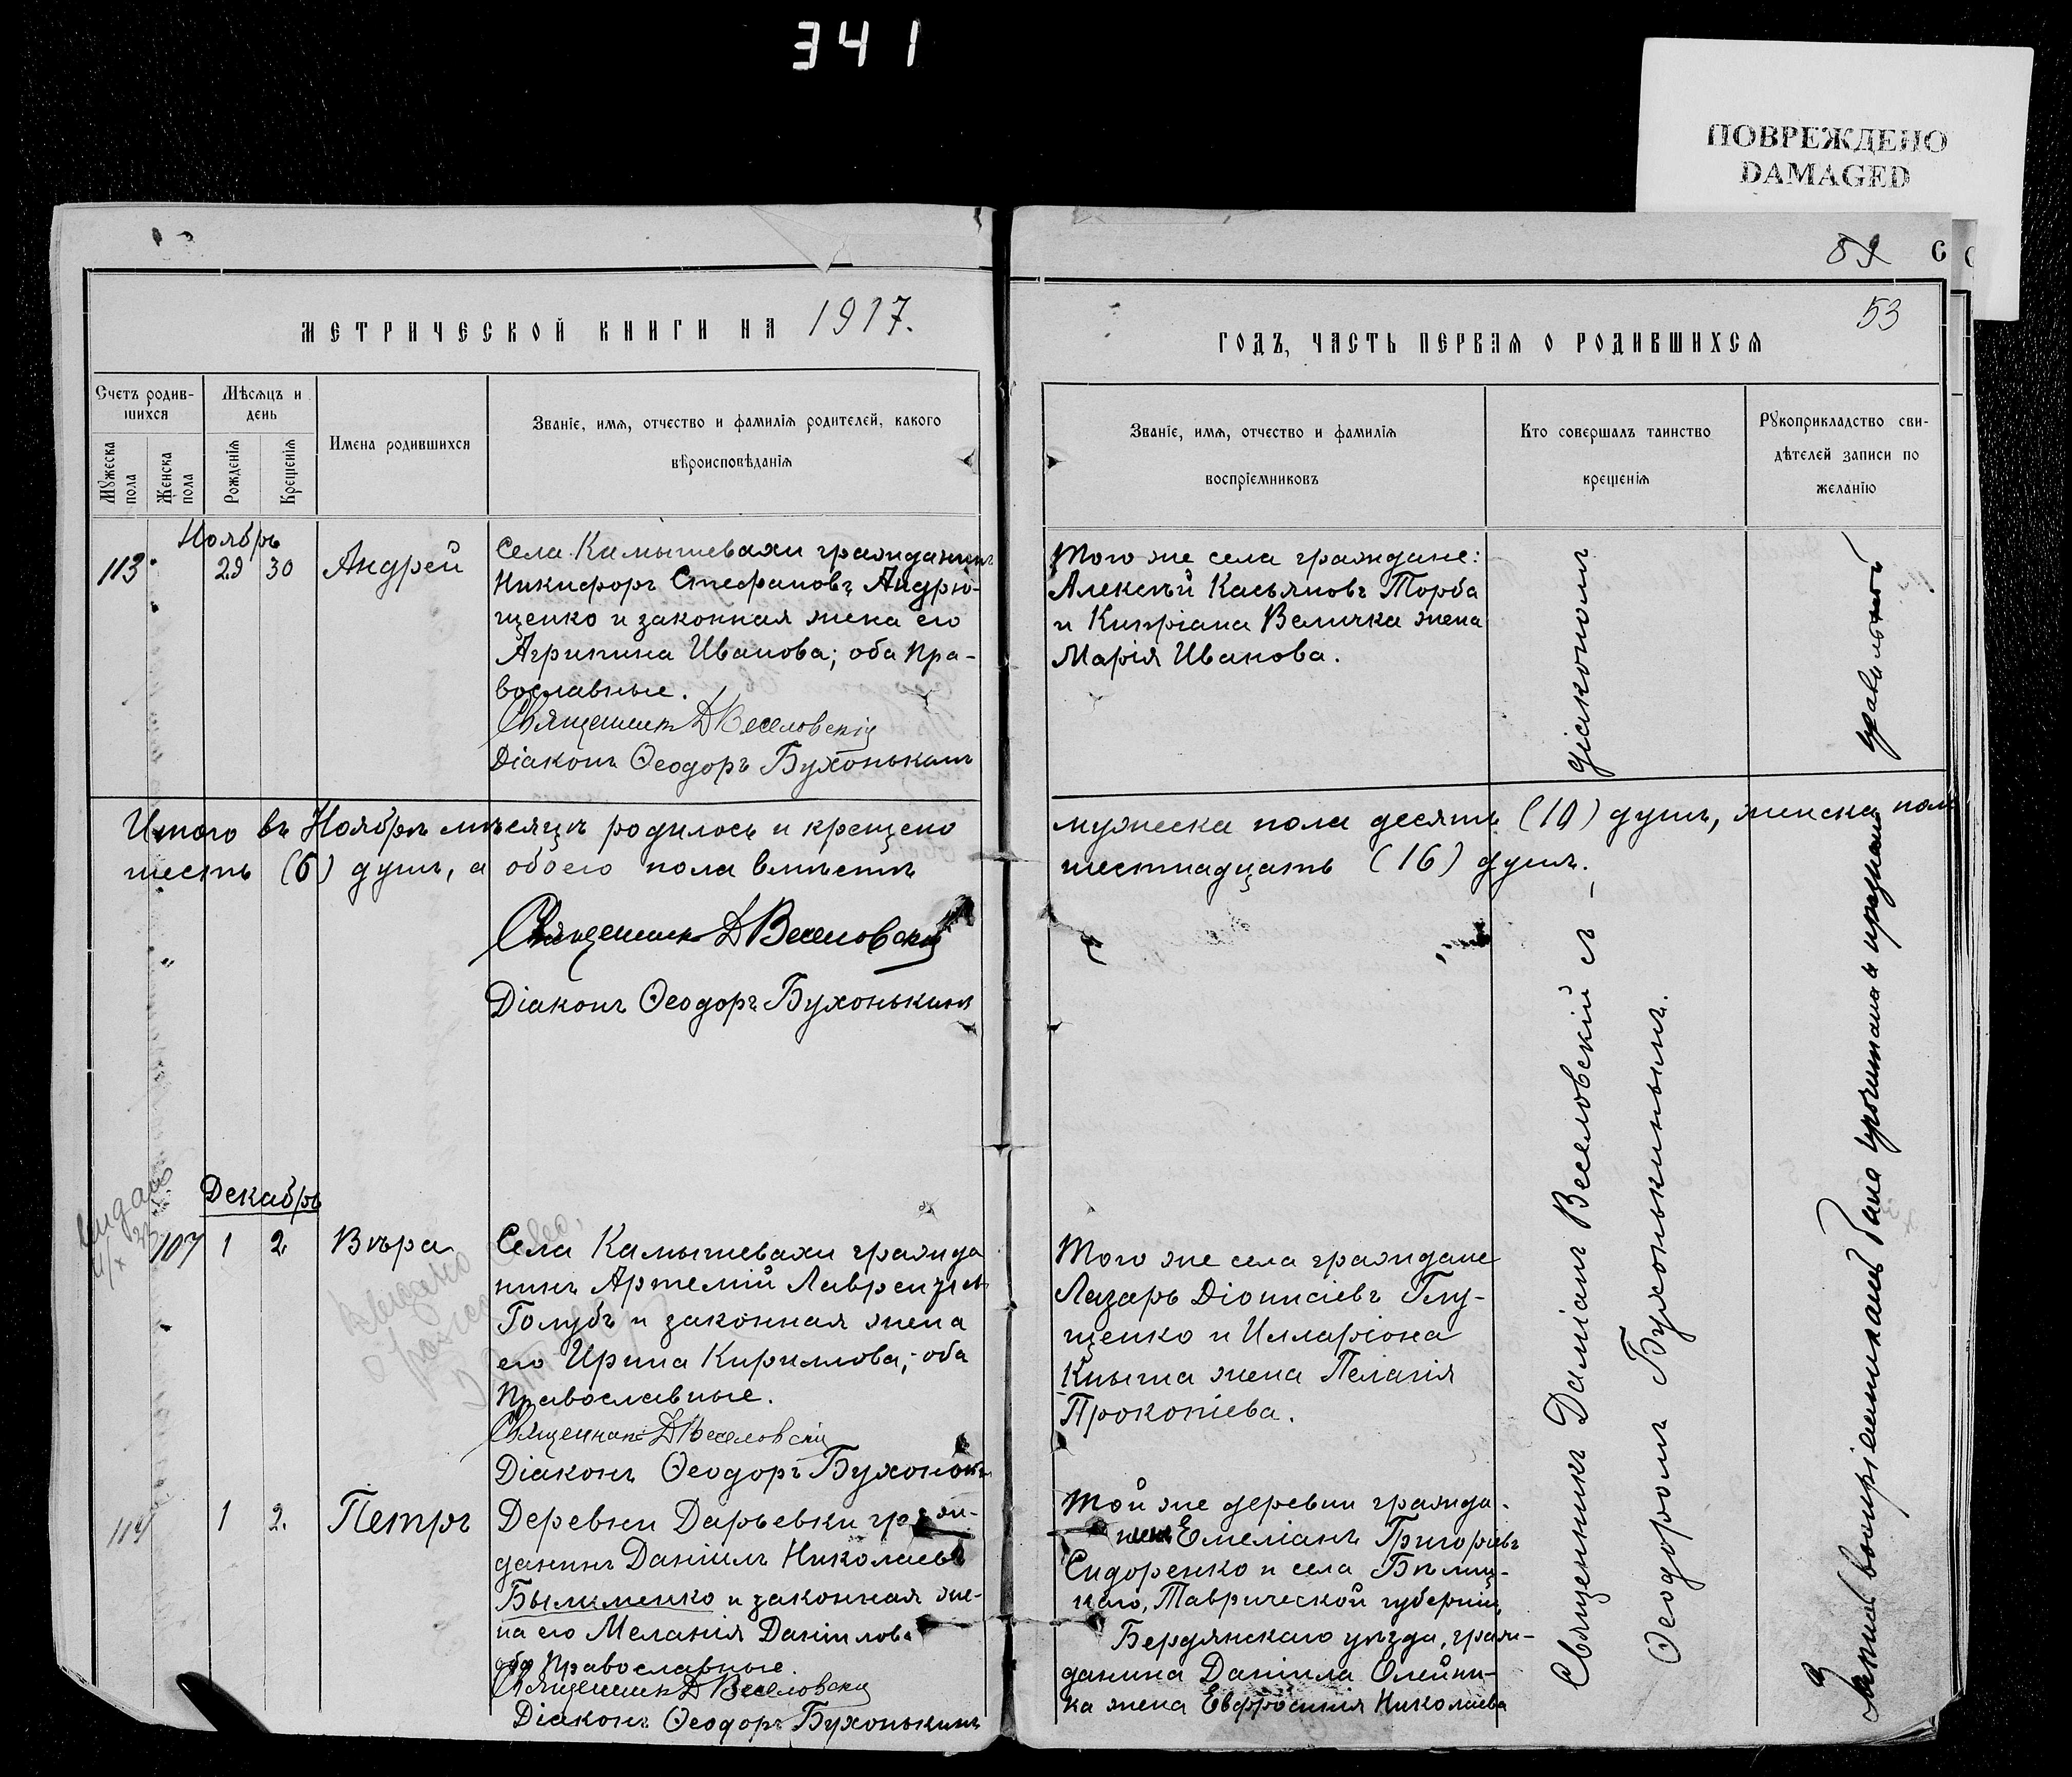 341
ПОВРЕЖДЕНО
DAMAGED
84 С
53
МЕТРИЧЕСКОЙ КНИГИ НА 1917.
ГОДЪ, ЧАСТЬ ПЕРВАЯ О РОДИВШИХСЯ
Счетъ родившихся
Мѣсяцъ и день
Мужеска пола
Женска пола
Рожденія
Крещенія
Имена родившихся
Званіе, имя, отчество и фамилія родителей, какого
вѣроисповѣданія
Званіе, имя, отчество и фамилія
воспріемниковъ
Кто совершалъ таинство
крещенія
Рукоприкладство сви-
дѣтелей записи по
желанію
Ноябрь
113 29 30 Андрей
Села Камышевахи гражданинъ
Никифоръ Стефановъ Андрю-
щенко и законная жена его
Агрипина Иванова; оба пра-
вославные.
Священникъ Д Веселовскій
Діаконъ Ѳеодоръ Бухонькинъ
Того же села граждане:
Алексѣй Касьяновъ Торба
и Кипріана Величка жена
Марія Иванова.
Итого въ Ноябрѣ мѣсяцѣ родилось и крещено
мужеска пола десять (10) душъ, женска пола
шесть (6) душъ, а обоего пола вмѣстѣ
шестнадцать (16) душъ.
Священникъ Д Веселовскій
Діаконъ Ѳеодоръ Бухонькинъ
Декабрь
107 1 2 Вѣра
Села Камышевахи гражда
нинъ Артемій Лаврентіевъ
Голубъ и законная жена
его Ирина Кириллова; оба
православные.
Священникъ Д Веселовскій
Діаконъ Ѳеодоръ Бухонькинъ
Того же села граждане
Лазарь Діонисіевъ Глу-
щенко и Илларіона
Кныша жена Пелагія
Прокопіева.
выдано
Выдано
114 1 2. Петръ
Деревни Дарьевки граж-
данинъ Даніилъ Николаевъ
Былименко и законная же-
на его Меланія Даніилова
оба православные.
Священникъ Д Веселовскій
Діаконъ Ѳеодоръ Бухонькинъ
Той же деревни гражда-
нинъ Емеліанъ Григоріевъ
Сидоренко и села
Таврической губерніи,
Бердянскаго уѣзда, граж-
данина Даніила Олейни-
ка жена Евфросинія Николаева
Священникъ Даміанъ Веселовскій съ діакономъ
Ѳеодоромъ Бухонькинымъ.